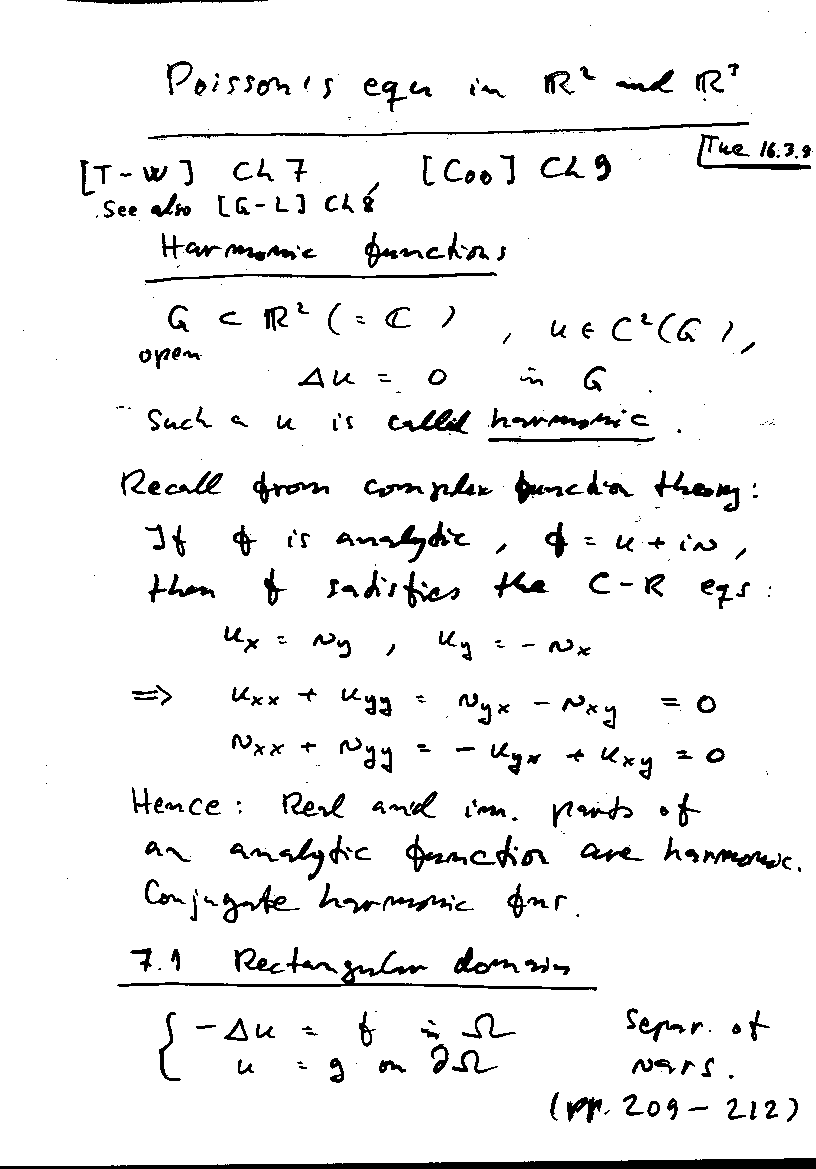 Poisson's equ in ℝ² and ℝ³
[Tue 16.3.9
[T-W] Ch 7, [Coo] Ch 9
See also [G-L] Ch 8
Harmonic functions
G ⊂ ℝ² (= ℂ), u ∈ C²(G),
open
Δu = 0 in G.
Such a u is called harmonic.
Recall from complex function theory:
If f is analytic, f = u + iv,
then f satisfies the C-R eqs:
u_x = v_y, u_y = -v_x
⇒ u_xx + u_yy = v_yx - v_xy = 0
v_xx + v_yy = -u_yx + u_xy = 0
Hence: Real and im. parts of
an analytic function are harmonic.
Conjugate harmonic fns.
7.1 Rectangular domains
{ -Δu = f in Ω Separ. of
u = g on ∂Ω vars.
(pp. 209-212)